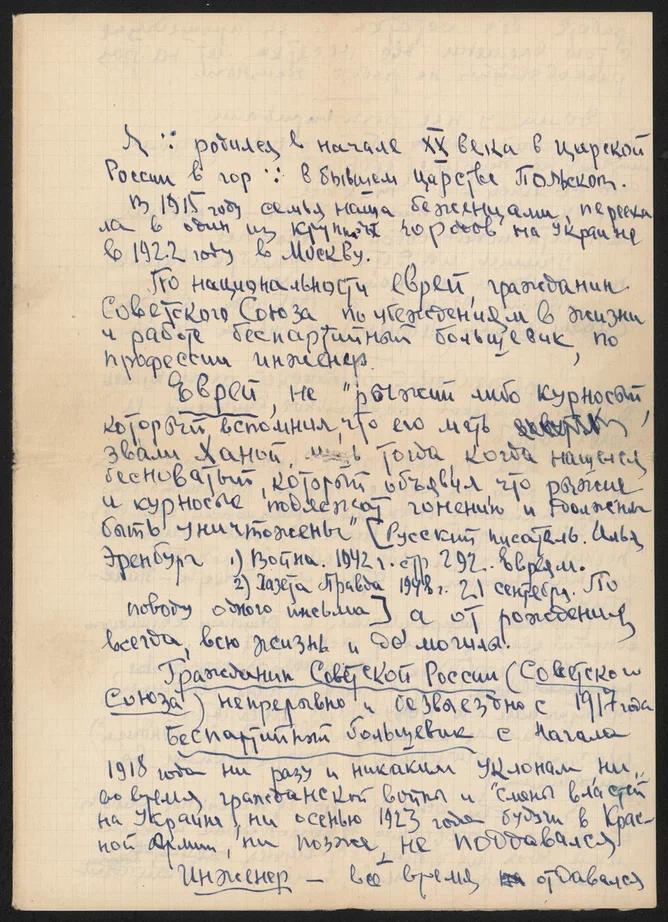 Я ∵ родился в начале XX века в царской
России в гор ∵ в бывшем царстве Польском.
В 1915 году семья наша беженцами, перееха
ла в один из крупных городов на Украине
в 1922 году в Москву.
По национальности еврей, гражданин
Советского Союза по убеждениям в жизни
и работе беспартийный большевик, по
профессии инженер.
Еврей, не "рыжий либо курносый,
который вспомнил, что его мать
звали Ханой, лишь тогда когда нашелся
бесноватый, который объявил что рыжие
и курносые подлежат гонению и должны
быть уничтожены" [Русский писатель. Илья
Эренбург 1) Война. 1942 г. стр. 292. Евреям.
2) Газета Правда 1948 г. 21 сентября. По
поводу одного письма] а от рождения
всегда, всю жизнь и до могилы.
Гражданин Советской России (Советского
Союза) непрерывно и безвыездно с 1917 года
Беспартийный большевик с начала
1918 года ни разу и никаким уклонам ни
во время гражданской войны и "смены властей"
на Украине, ни осенью 1923 года будучи в Крас-
ной Армии, ни позже не поддавался
Инженер – все время отдавался